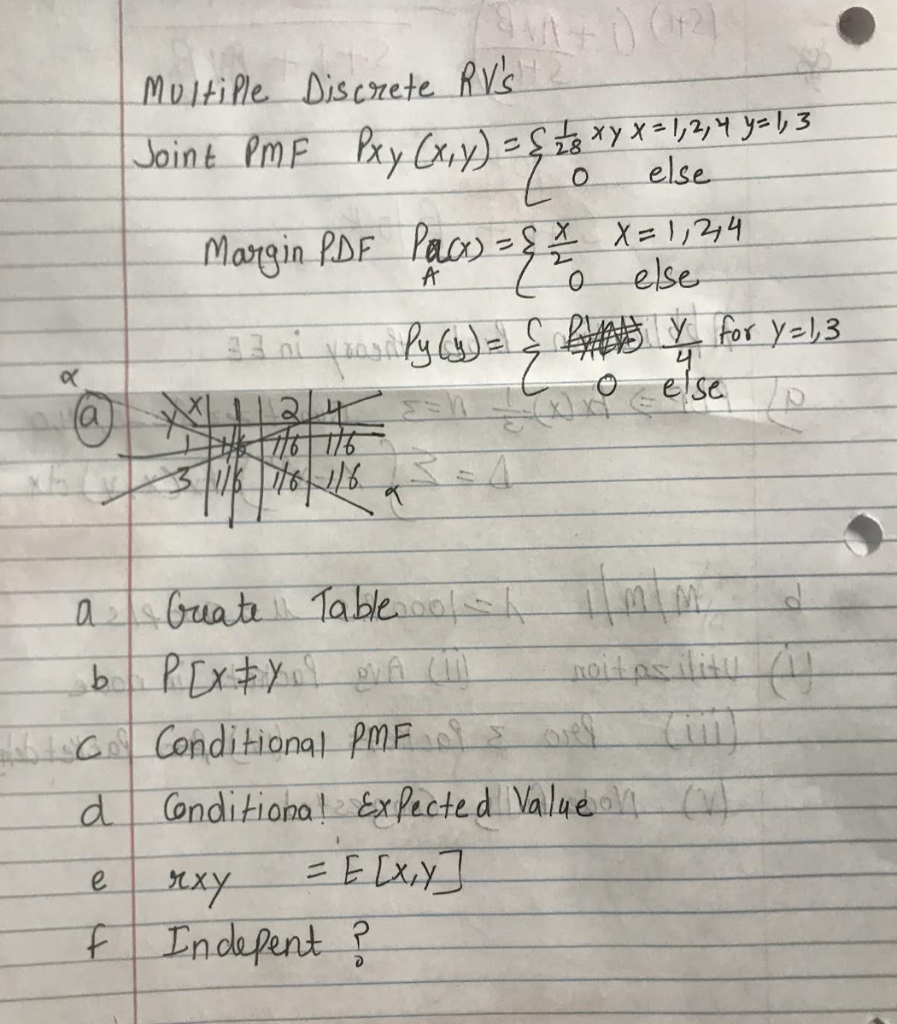 Multiple Discrete RV's
Joint PMF Pxy (x,y) = { 1/28 xy x=1,2,4 y=1,3
0 else
Margin PDF Pa(x) = { x/2 x=1,2,4
A
0 else
Py(y) = { y/4 for y=1,3
0 else
α
ⓐ Y X 1 2 4
1 1/6 1/6 1/6
3 1/6 1/6 1/6 α
a Create Table
b P[x≠y
c Conditional PMF
d Conditional Expected Value
e rxy = E[x,y]
f Indepent ?